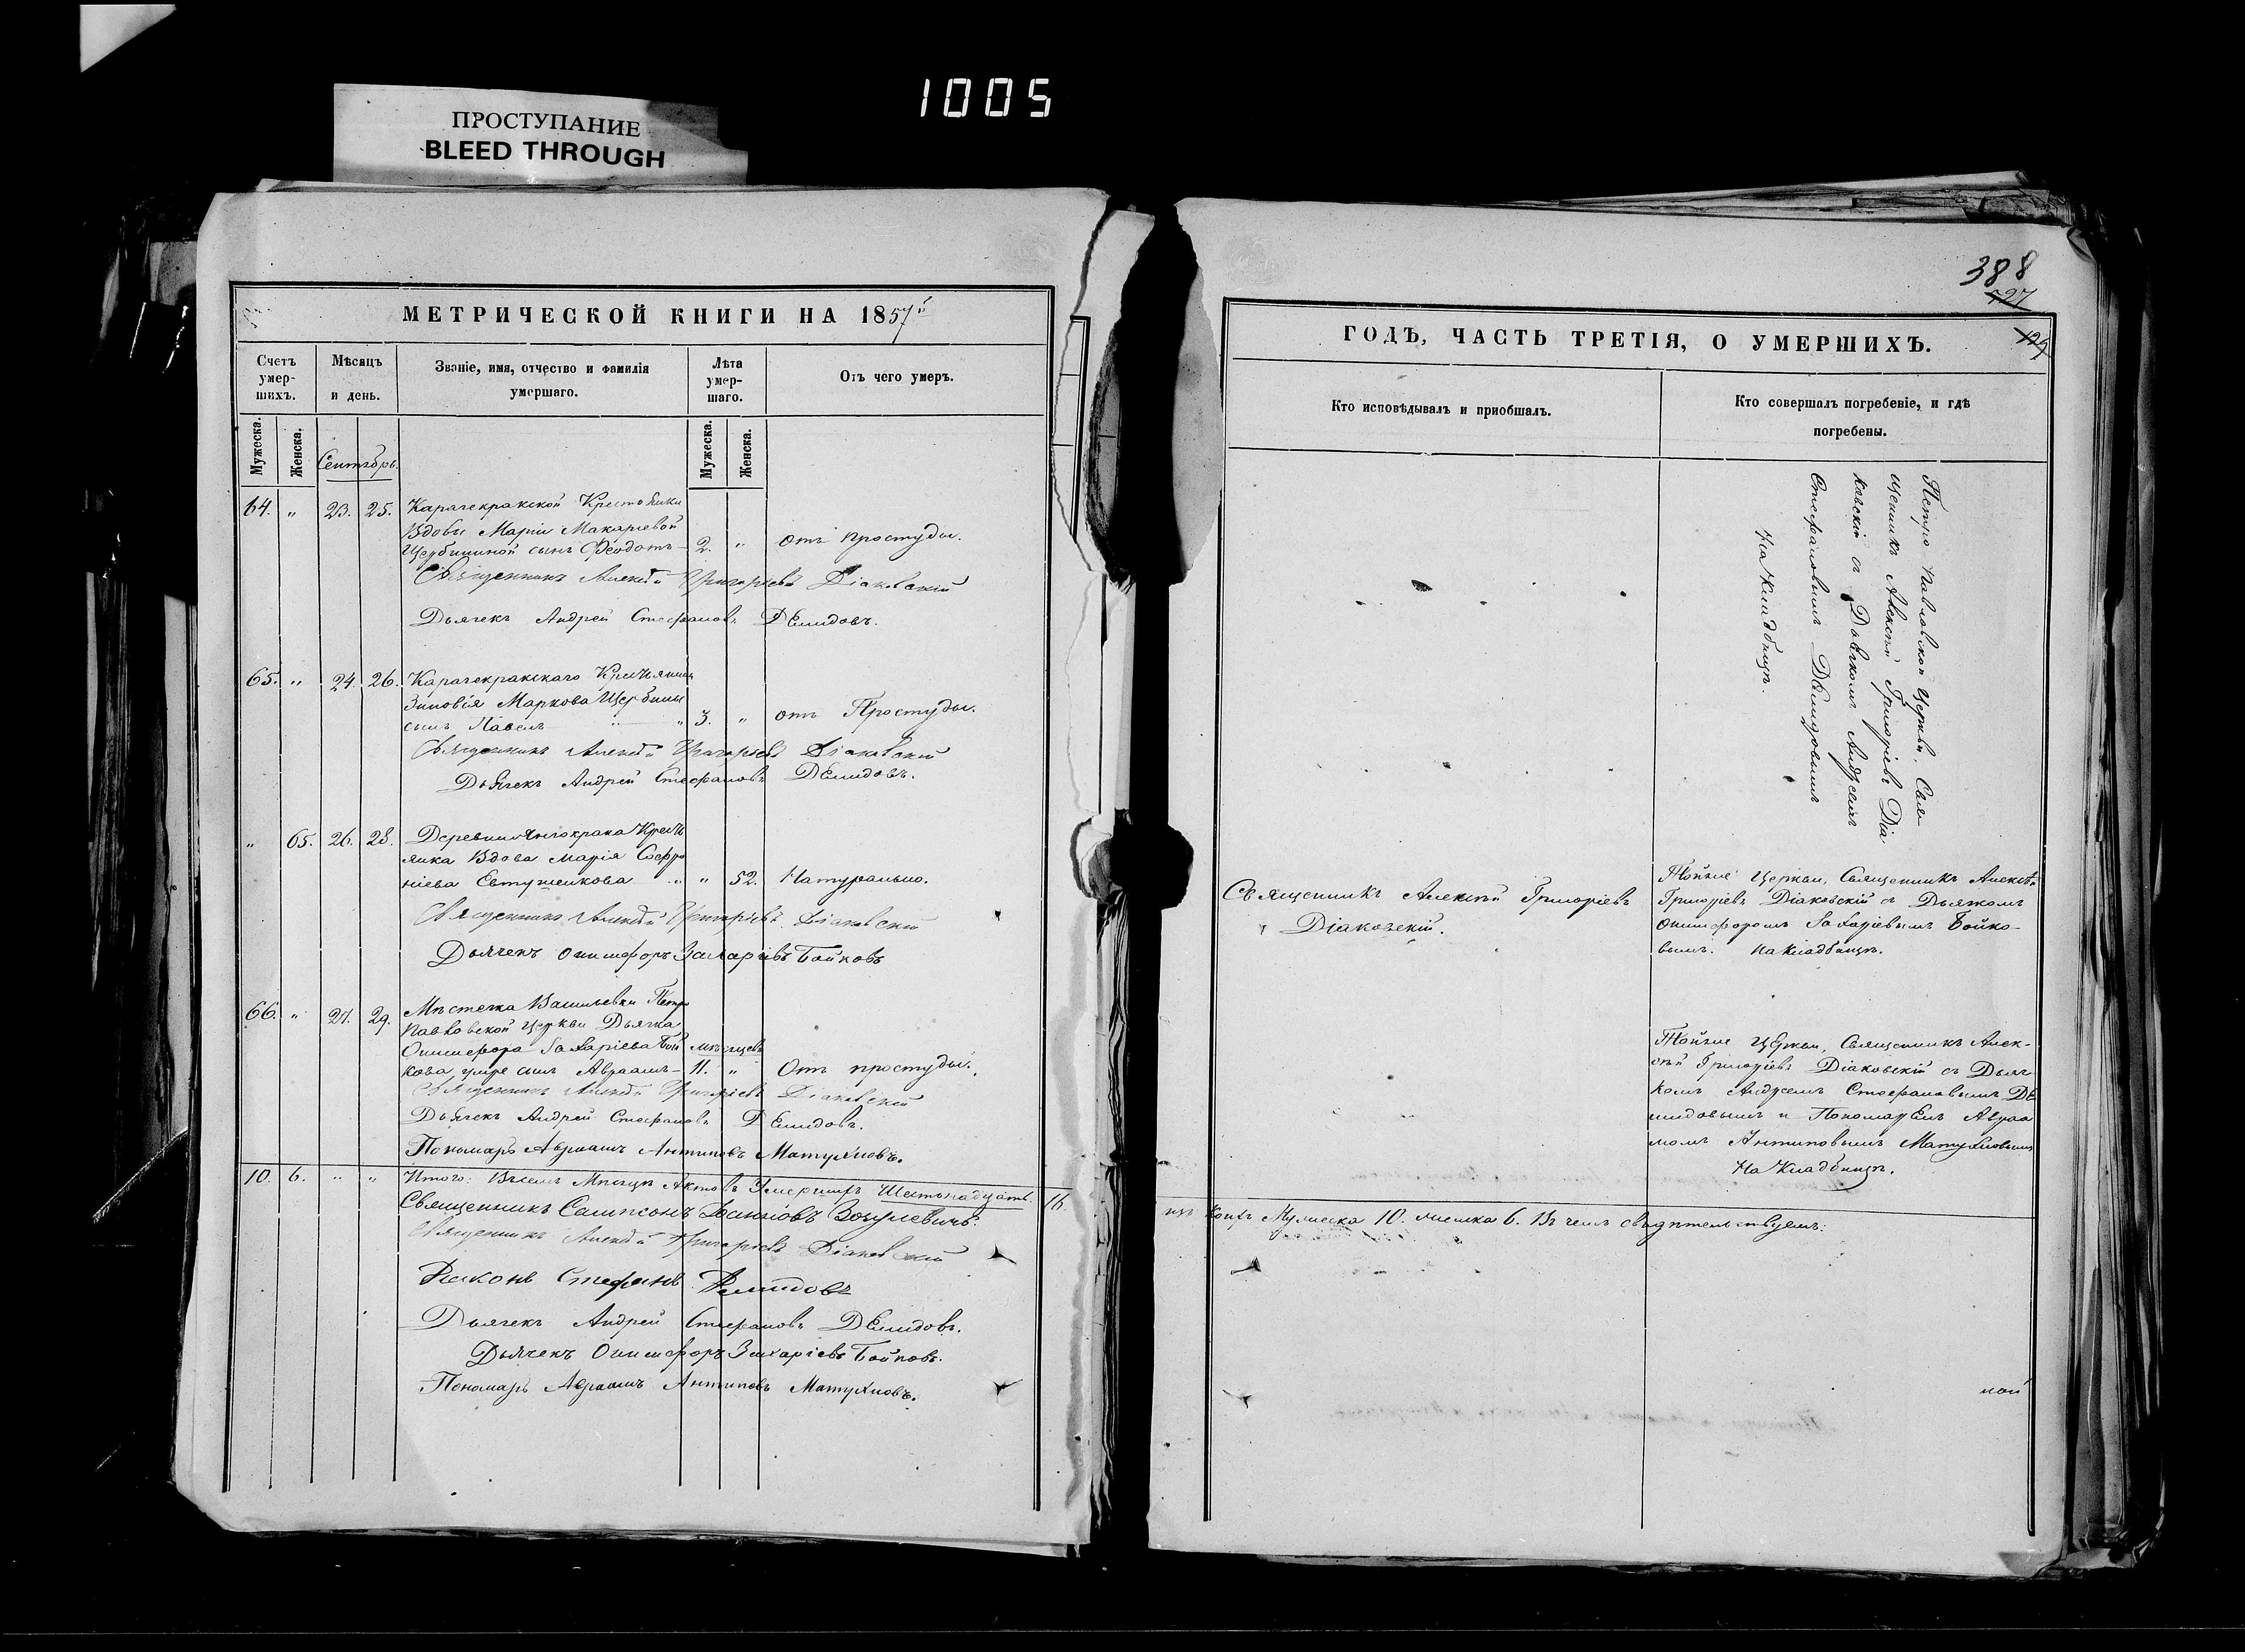 1005
ПРОСТУПАНИЕ
BLEED THROUGH
МЕТРИЧЕСКОЙ КНИГИ НА 1857й
Счетъ умер-шихъ.
Мѣсяцъ и день.
Званіе, имя, отчество и фамилія умершаго.
Лѣта умер-шаго.
Отъ чего умеръ.
Мужеска.
Женска.
Сентябрь.
Мужеска.
Женска.
64. " 23. 25. Карачекракской Крестьянки
Вдовы Маріи Макаріевой
Щербининой сынъ Ѳеодотъ - 2. " отъ простуды.
Священникъ Алексѣй Григоріевъ Діаковскій
Дьячекъ Андрей Стефановъ Демидовъ.
65. " 24. 26. Карачекракскаго Крестьянина
Зиновія Маркова Щербины
сынъ Павелъ " " 3. " отъ Простуды.
Священникъ Алексѣй Григоріевъ Діаковскій
Дьячекъ Андрей Стефановъ Демидовъ.
" 65. 26. 28. Деревни Янчокрака Кресть
янка Вдова Марія Софро
ніева Евтушенкова " " 52. Натурально.
Священникъ Алексѣй Григоріевъ Діаковскій
Дьячекъ Онисифоръ Захаріевъ Бойковъ
66. " 27. 29. Мѣстечка Васильевки Петро
Павловской Церкви Дьячка
Онисифора Захаріева Бой мѣсяцевъ
кова умре сынъ Авраамъ - 11. " Отъ простуды.
Священникъ Алексѣй Григоріевъ Діаковскій
Дьячекъ Андрей Стефановъ Демидовъ.
Пономарь Авраамъ Антиповъ Матухновъ.
10. 6. " " Итого: Въ семъ Мѣсяцѣ Актовъ Умершихъ Шестьнадцать. 16.
Священникъ Сампсонъ Іоанновъ
Священникъ Алексѣй Григоріевъ Діаковскій
Діаконъ Стефанъ Демидовъ
Дьячекъ Андрей Стефановъ Демидовъ.
Дьячекъ Онисифоръ Захаріевъ Бойковъ.
Пономарь Авраамъ Антиповъ Матухновъ.
388
727
129
ГОДЪ, ЧАСТЬ ТРЕТІЯ, О УМЕРШИХЪ.
Кто исповѣдывалъ и пріобщалъ.
Кто совершалъ погребеніе, и гдѣ погребены.
Петро Павловской Церкви, Свя-
щенникъ Алексѣй Григоріевъ Діа
ковскій съ Дьячкомъ Андреемъ
Стефановымъ Демидовымъ
На Кладбищѣ.
Священникъ Алексѣй Григоріевъ
Діаковскій.
Тойже Церкви, Священникъ Алексѣй
Григоріевъ Діаковскій съ Дьячкомъ
Онисифоромъ Захаріевымъ Бойко-
вымъ. На кладбищѣ.
Тойже Церкви, Священникъ Алек-
сѣй Григоріевъ Діаковскій съ Дьяч
комъ Андреемъ Стефановымъ Де
мидовымъ и Пономаремъ Авраа
момъ Антиповымъ Матухновымъ
На Кладбищѣ.
Мужеска 10. женска 6. Въ чемъ свидѣтельствуемъ:
ной